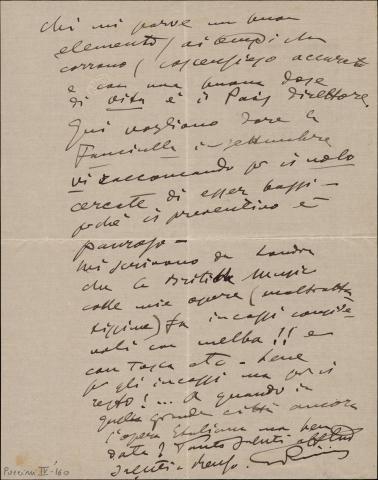 chi mi parve un buon
elemento / ai tempi che
corrono / coscenzioso accurato
e con una buona dose
di vita è il Pais direttore.
Qui vogliono dare la
Fanciulla in settembre
vi raccomando per il nolo
cercate di esser bassi —
poichè il preventivo è
pauroso —
mi scrivono da Londra
che la British Music
colle mie opere (maltratta
tissime) fa incassi
con melba!! e
con Tosca etc — bene
per gli incassi ma per il
resto!... A quando in
quella grande città ancora
l'opera italiana ma ben
data? Tanti
Puccini IV-160